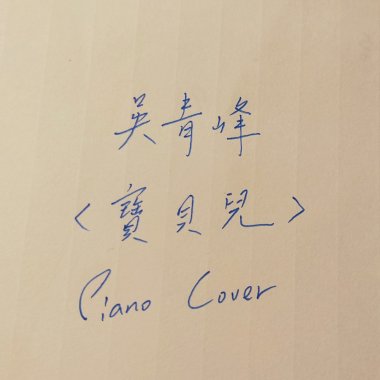 吳青峰
〈寶貝兒〉
Piano Cover